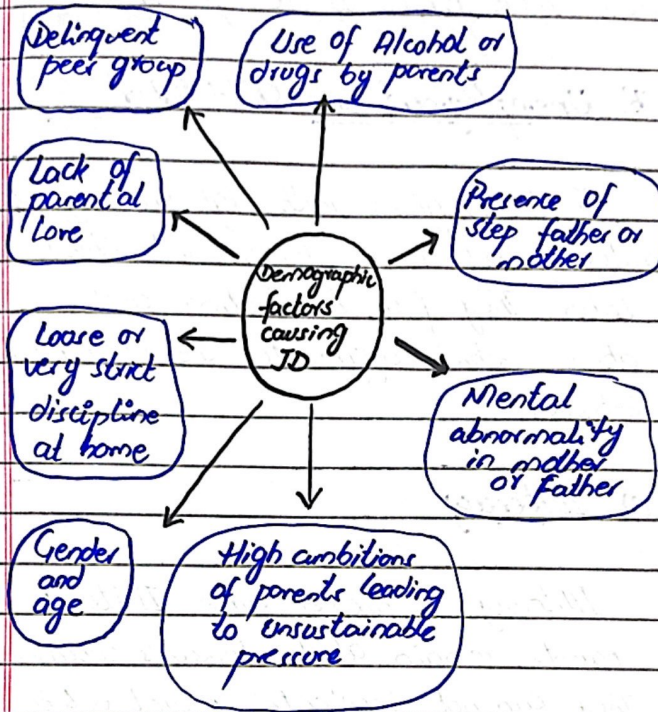 Delinquent
peer group
Use of Alcohol or
drugs by parents
Lack of
parental
Love
Presence of
step father or
mother
Demographic
factors
causing
JD
Loose or
very strict
discipline
at home
Mental
abnormality
in mother
or father
Gender
and
age
High ambitions
of parents leading
to unsustainable
pressure